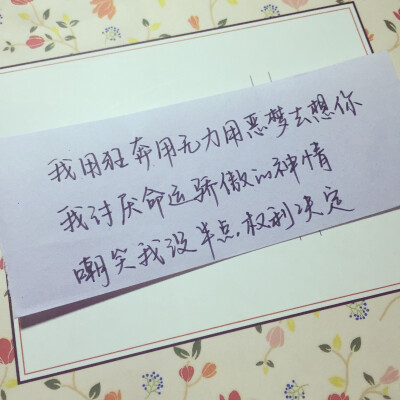 我用狂奔用无力用恶梦去想你
我讨厌命运骄傲的神情
嘲笑我没半点权利决定